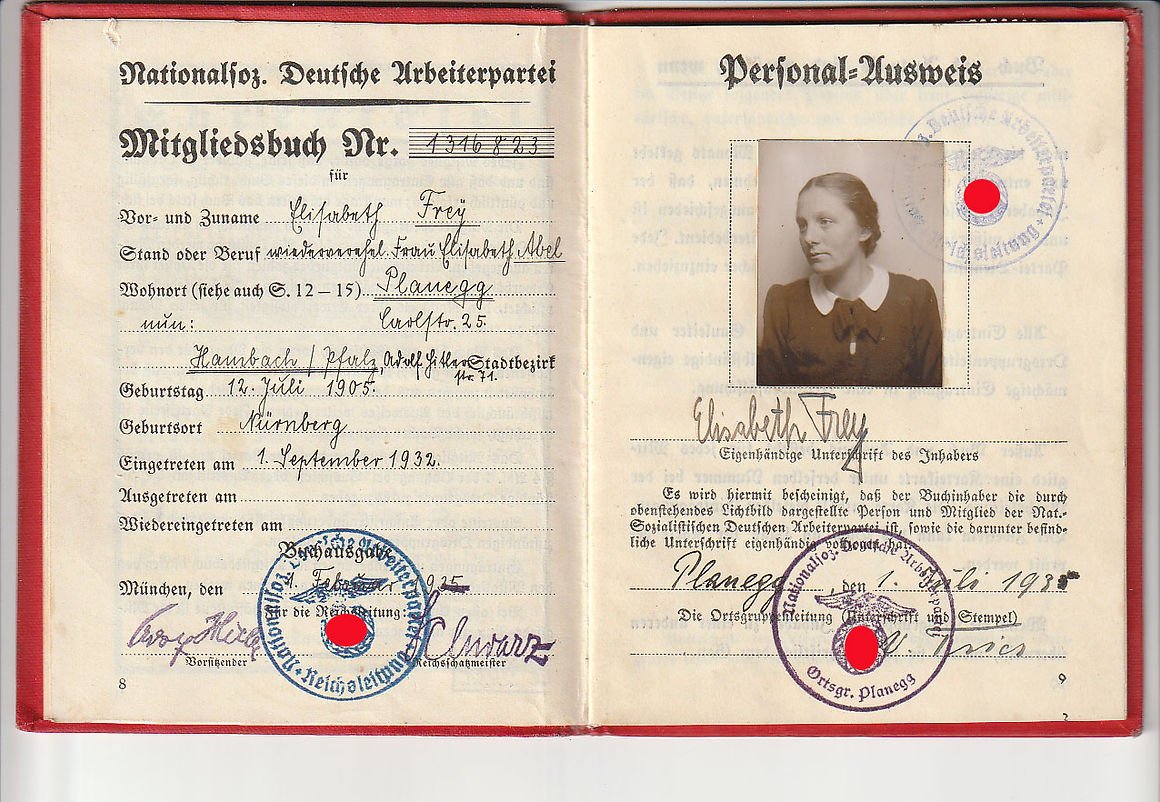 Nationalsoz. Deutsche Arbeiterpartei
Mitgliedsbuch Nr. 1316823
für
Vor- und Zuname Elisabeth Frey
Stand oder Beruf wiederverehel. Frau Elisabeth Abel
Wohnort (siehe auch S. 12–15) Planegg
nun: Carlstr. 25.
Hambach / Pfalz, Adolf Hitler Stadtbezirk
str. 71.
Geburtstag 12. Juli 1905.
Geburtsort Nürnberg
Eingetreten am 1. September 1932.
Ausgetreten am
Wiedereingetreten am
Buchausgabe
München, den Februar 1935
Für die Reichsleitung:
Schwarz
Vorsitzender
Reichsschatzmeister
Nationalsoz. Deutsche Arbeiterpartei
Reichsleitung
8
Personal-Ausweis
Deutsche Arbeiterpartei
Reichsleitung
Elisabeth Frey
Eigenhändige Unterschrift des Inhabers
Es wird hiermit bescheinigt, daß der Buchinhaber die durch
obenstehendes Lichtbild dargestellte Person und Mitglied der Nat.-
Sozialistischen Deutschen Arbeiterpartei ist, sowie die darunter befind-
liche Unterschrift eigenhändig vollzogen hat.
Planegg, den 1. Juli 193
Die Ortsgruppenleitung (Unterschrift und Stempel)
Nationalsoz. Deutsche Arbeiterpartei
Ortsgr. Planegg
9